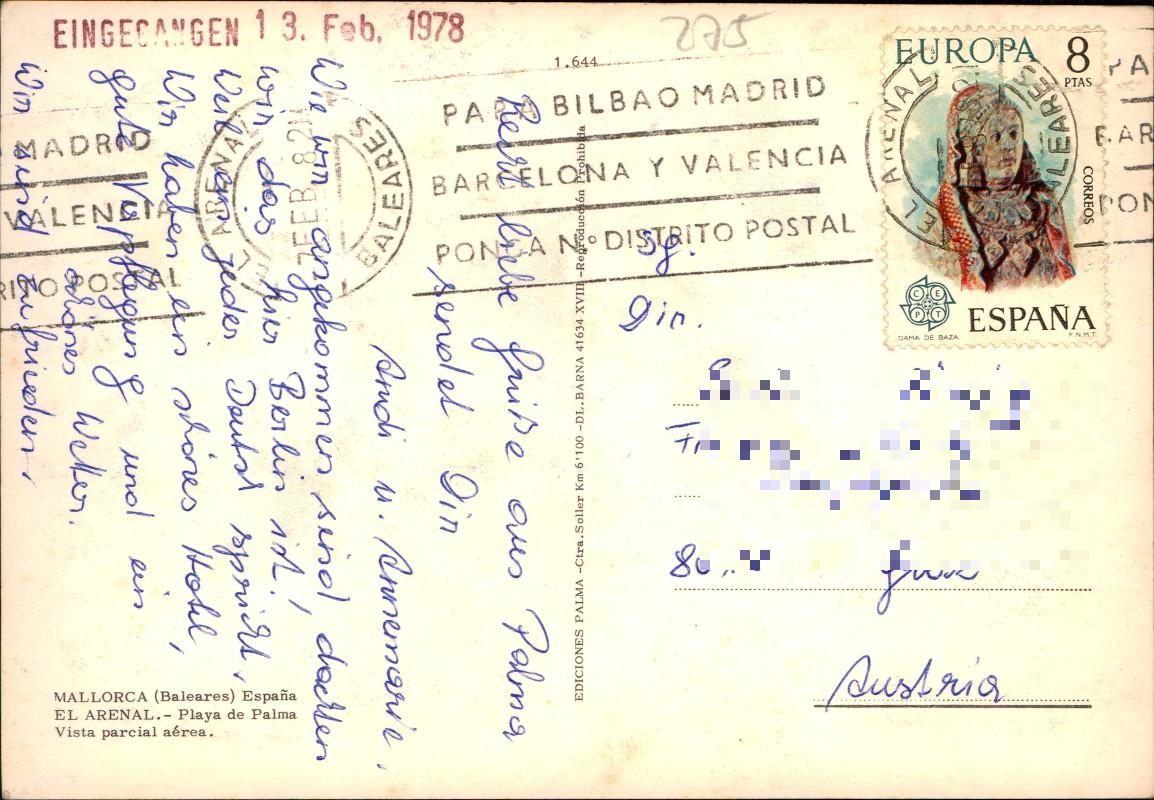 EINGEGANGEN 13. Feb. 1978
275
1.644
PARA BILBAO MADRID
BARCELONA Y VALENCIA
PONGA Nº DISTRITO POSTAL
EL ARENAL
7 FEB 8 21
BALEARES
MADRID
VALENCIA
RITO POSTAL
EUROPA 8
PTAS
CORREOS
CEPT
ESPAÑA
DAMA DE BAZA
F.N.M.T.
EL ARENAL
BALEARES
PA
BAR
PON
Recht liebe Grüße aus Palma
sendet Dir
Andi u. Annemarie.
Wie wir angekommen sind, dachten
wir das hier Berlin ist!
Weil jeder Deutsch spricht.
Wir haben ein schönes Hotel,
gute Verpflegung und ein
schönes Wetter.
Wir sind zufrieden.
EDICIONES PALMA - Ctra. Soller Km 6'100 - DL. BARNA 41634 XVIII - Reproducción Prohibida
Sg.
Dir.
Austria
MALLORCA (Baleares) España
EL ARENAL.- Playa de Palma
Vista parcial aérea.